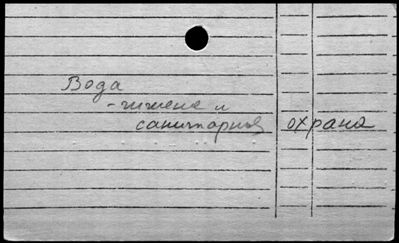 Вода
- гигиена и
санитарная охрана